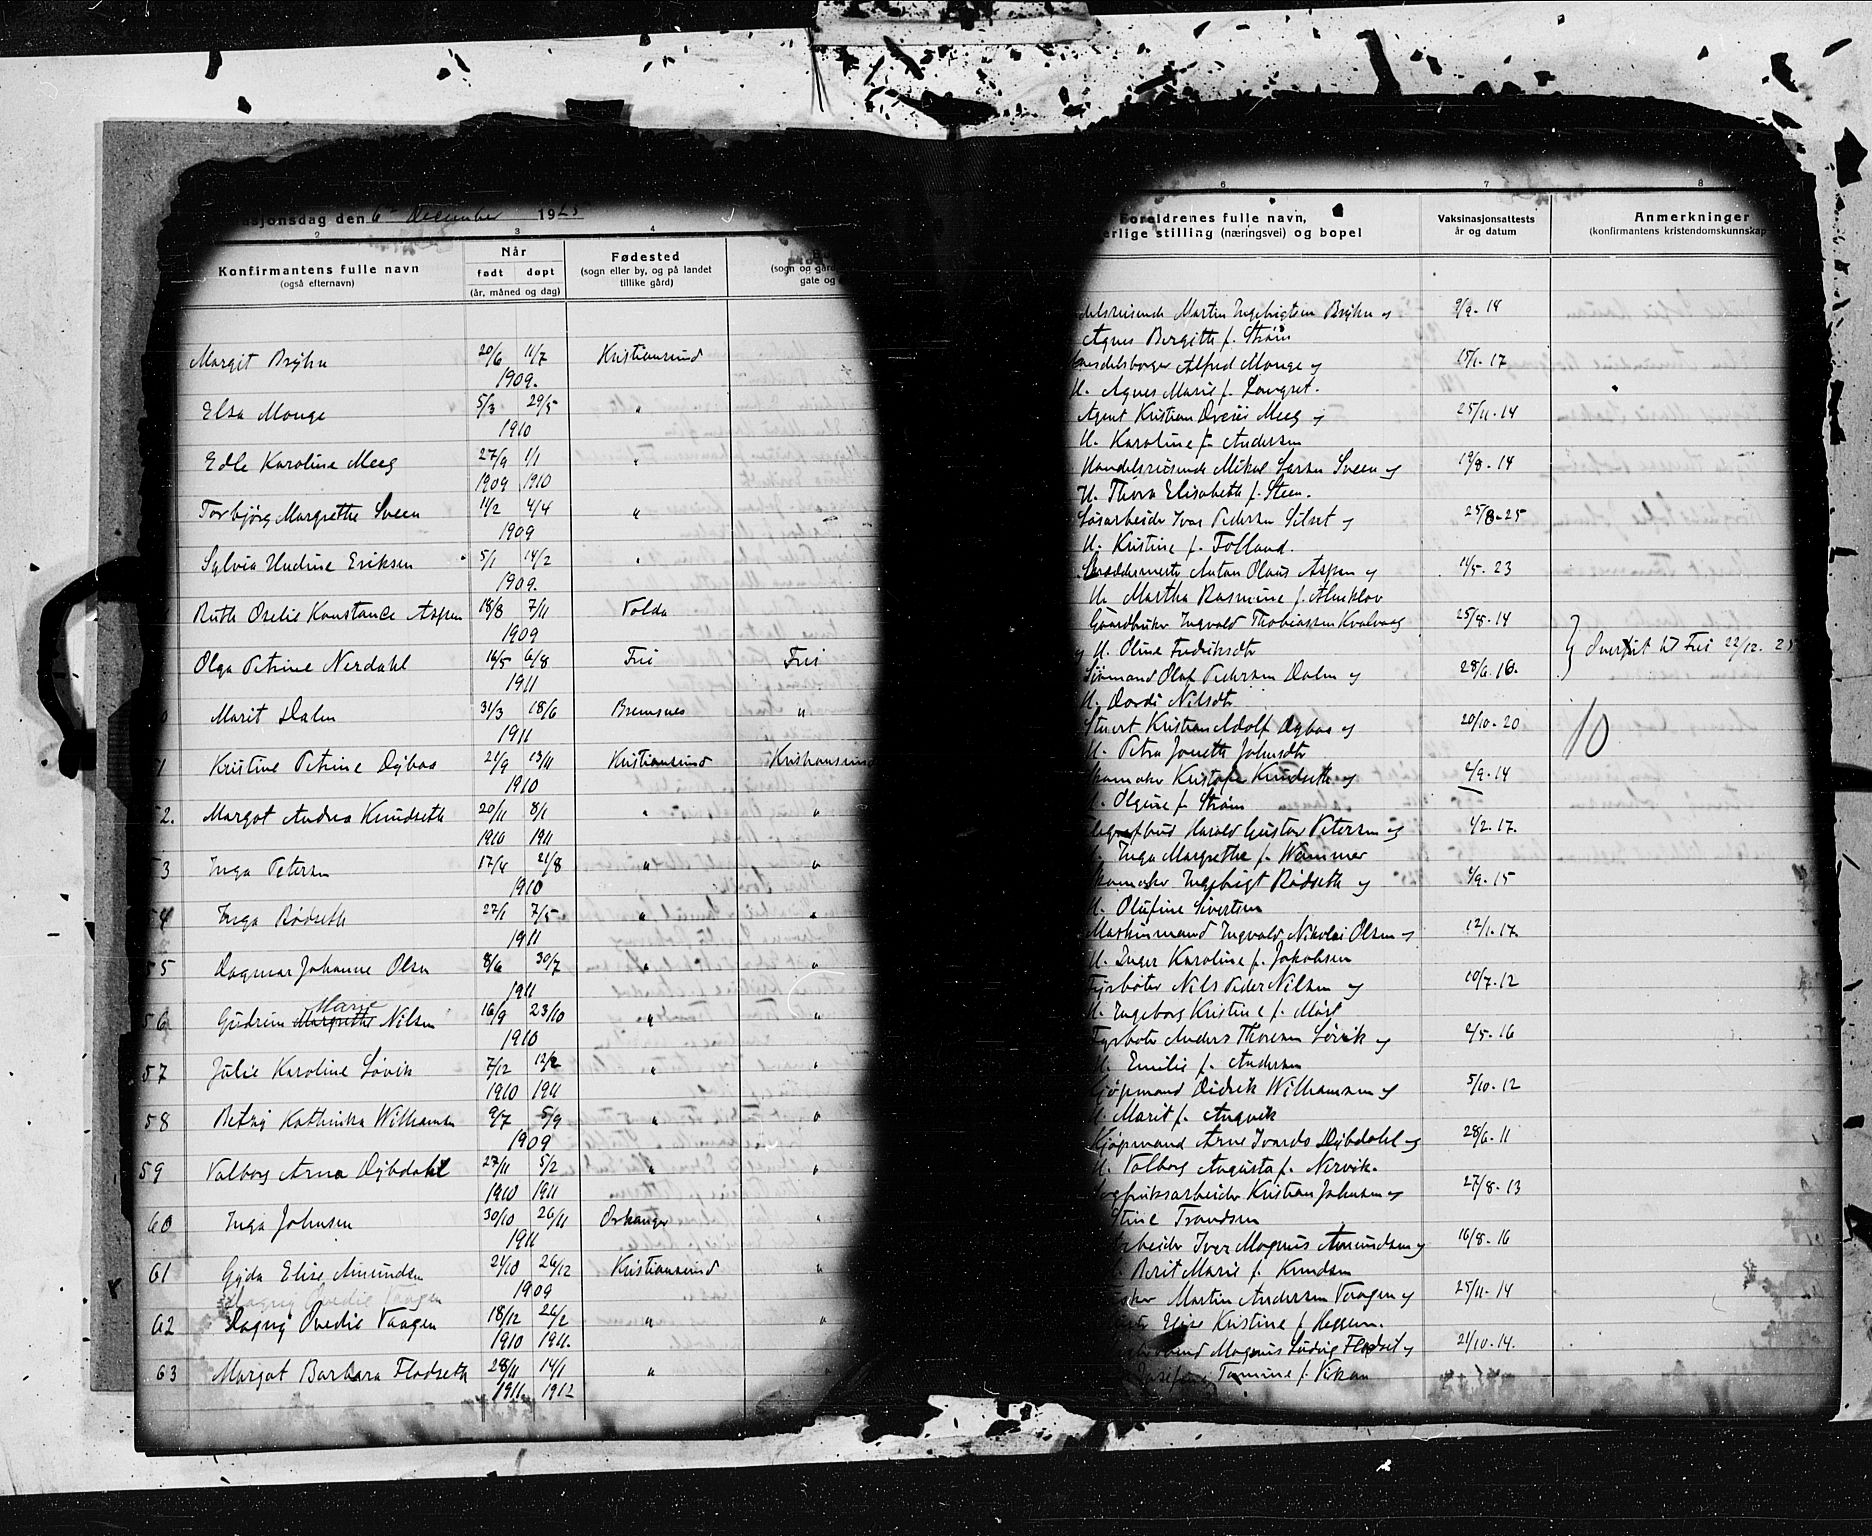 sjonsdag den 6te December 1925
2 3 4
Konfirmantens fulle navn
(også efternavn)
Når
født døpt
(år, måned og dag)
Fødested
(sogn eller by, og på landet
tillike gård)
(sogn og gård
gate og
Margit Bryhn 20/6 11/7 Kristiansund
1909.
Elsa Monge 5/3 29/5 "
1910
Edle Karoline Meeg 27/9 1/1 "
1909 1910
Torbjørg Margrethe Sveen 11/2 4/4 "
1909
Sylvia Undine Eriksen 5/1 14/2 "
1909.
Ruth Konstance Aspen 18/8 7/11 Volda
1909
Olga Petrine Nerdahl 16/5 6/8 Frei Frei
1911
Marit Dalen 31/3 18/6 Bremsnes "
1911
Kristine Petrine 21/9 13/11 Kristiansund Kristiansund
1910
52. Margot Andrea Knudseth 20/11 8/1 " "
1910 1911
53 Inga Petersen 17/4 21/8 " "
1910
54 Inga Rødseth 27/1 7/5 " "
1911
55 Dagmar Johanne Olsen 8/6 30/7 " "
1911
Marie
56 Gudrun Margrethe Nilsen 16/9 23/10 " "
1910
57 Julie Karoline Løvik 7/12 12/2 " "
1910 1911
58 Betsy Kathinka Wilhamsen 9/7 5/9 " "
1909
59 Valborg Arna Dybdahl 27/11 5/2 " "
1910 1911
60 Inga Johnsen 30/10 26/11 Orkanger "
1911
61 Gyda Elise Amundsen 24/10 26/12 Kristiansund "
1909
62 Dagny Ovedie Vaagen 18/12 26/2 " "
1910 1911.
63 Margot Barbara Flodseth 28/11 14/1 "
1911 1912
6 7 8
Foreldrenes fulle navn,
erlige stilling (næringsvei) og bopel
Vaksinasjonsattests
år og datum
Anmerkninger
(konfirmantens kristendomskunnskap
delsreisende Martin Ingebrigtsen Bryhn og 9/9-14
Agnes Bergitte f. Strøm
Handelsborger Alfred Monge og 15/1-17
H. Agnes Marie f. Langset.
Agent Kristian Meeg og 25/11-14
H. Karoline f. Andersen
Handelsreisende Mikal Larsen Sveen og 19/8-14
H. Thora Elisabeth f. Steen.
Løsarbeider Ivar Pedersen Silset og 25/8-25
H. Kristine f. Folland.
Skreddermester Anton Olaus Aspen og 14/5-23
H. Martha Rasmine f. Almklov
Gaardbruker Ingvald Thobiassen Kvalvaag 25/8-14
og H. Oline Fredriksdtr
Sjømand Olaf Pedersen Dalen og 28/6-16.
H. Dordi Nilsdtr
22/12. 25
Stuert Kristian Adolf og 20/10-20
H. Petra Jonette Johnsdtr
10
komaker Kristofer Knudseth og 4/9-14
H. Olgine f. Strøm
Harald Gustav Petersen og 1/2-17.
Inga Margrethe f. Wammer
komaker Ingebrigt Rødseth og 4/9-15
H. Olufine Sivertsen
Maskinmand Ingvald Nikolai Olsen og 12/1-17.
H. Inger Karoline f. Jakobsen
Fyrbøter Nils Peder Nilsen og 10/7-12
H. Ingeborg Kristine f.
Fyrbøter Anders Thoresen Løvik og 2/5-16
H. Emilie f. Andersen
Kjøpmand Didrik Wilhamsen og 5/10-12
H. Marit f. Angvik
Kjøpmand Arne Dybdahl og 28/6-11
H. Valborg Augusta f. Nervik.
Kristian Johnsen og 27/8-13
Stine Trondsen
rbeider Iver Magnus Amundsen og 16/8-16
Berit Marie f. Knudsen
Martin Andersen Vaagen og 25/11-14
Elise Kristine f. Heggem.
Magnus Ludvig Flodset og 21/10-14.
f. Vikan